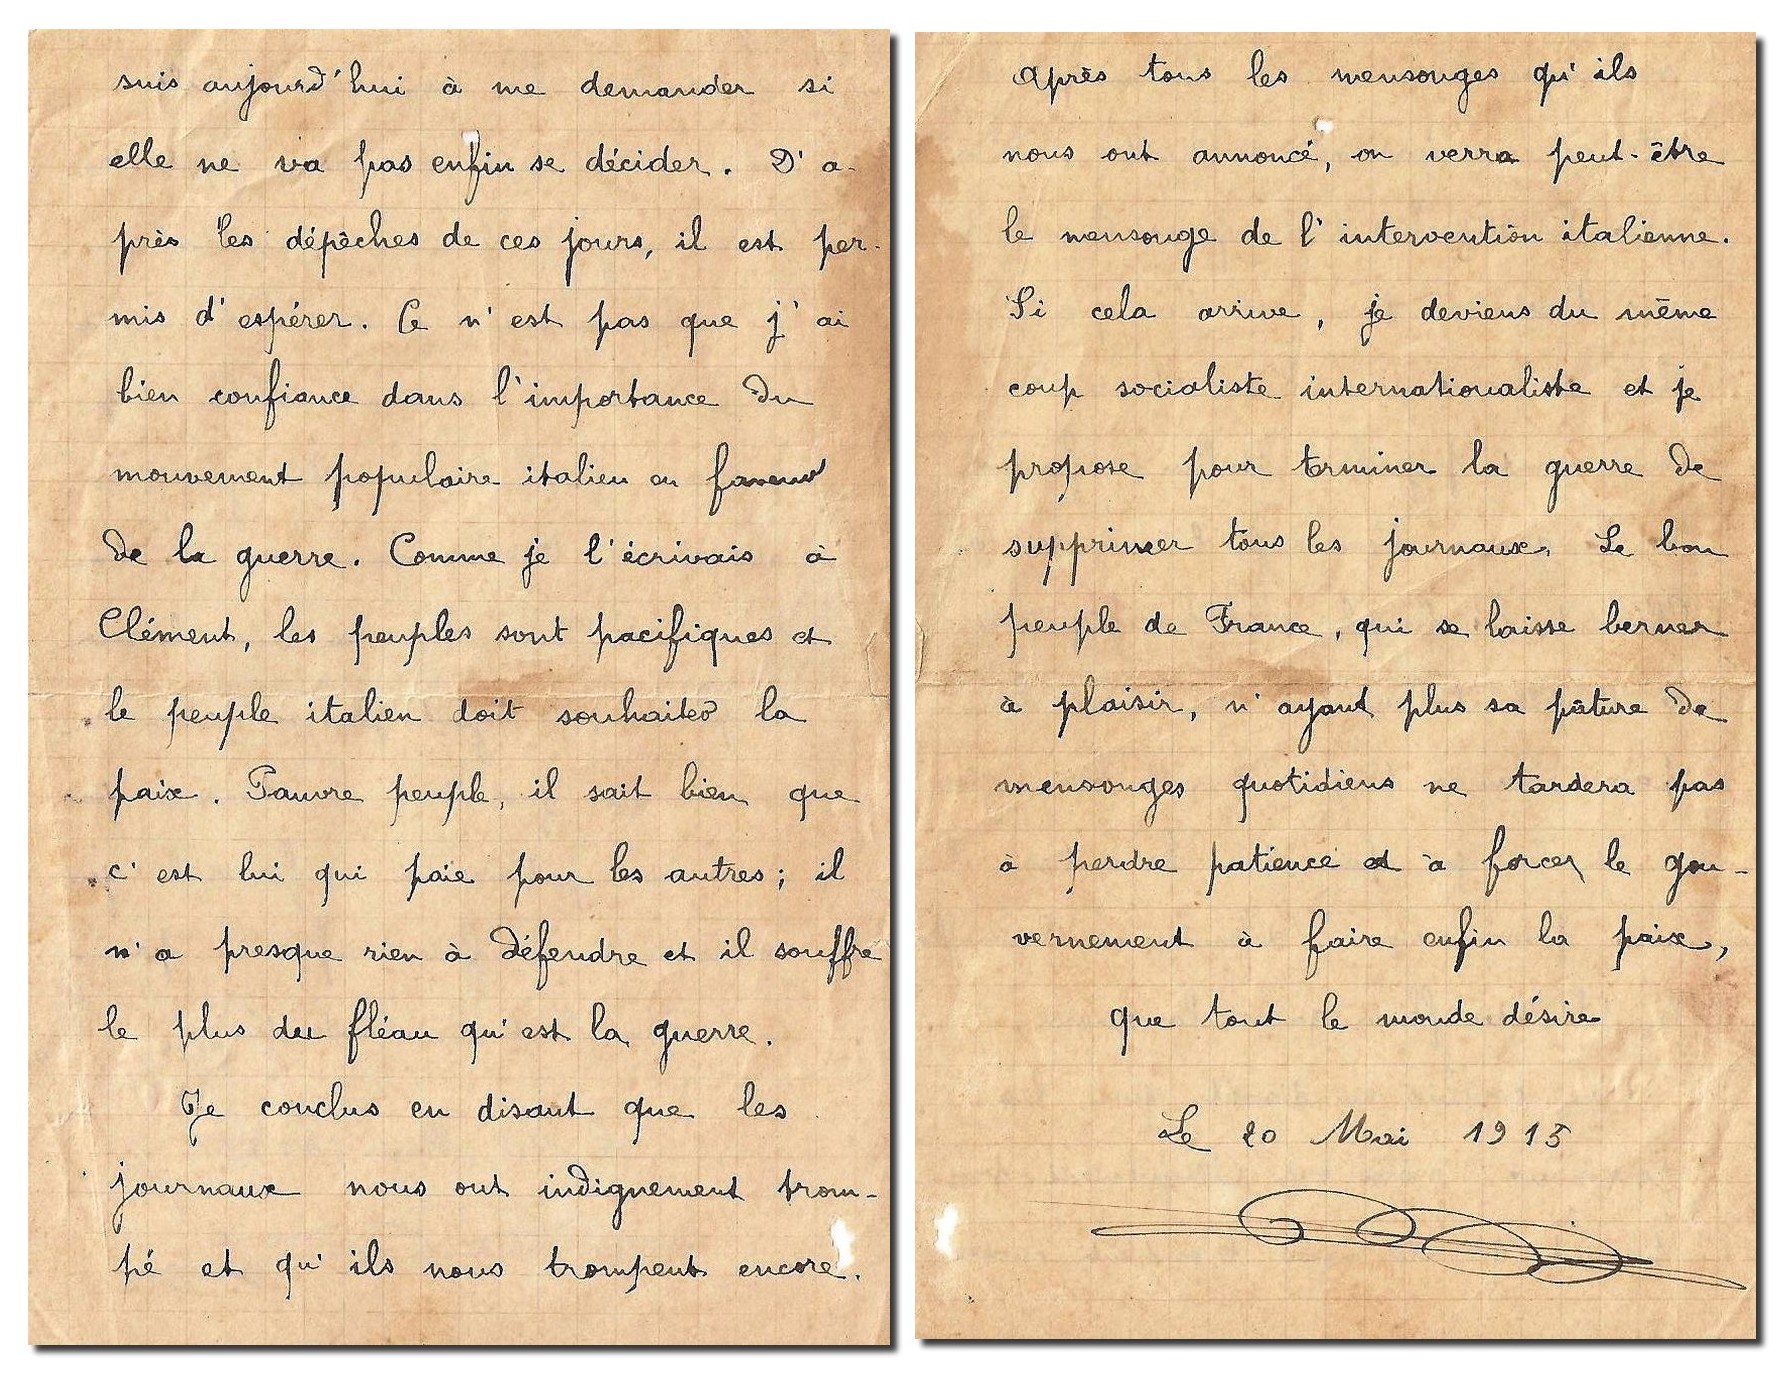 suis aujourd'hui à me demander si
elle ne va pas enfin se décider. D'a-
près les dépêches de ces jours, il est per-
mis d'espérer. Ce n'est pas que j'ai
bien confiance dans l'importance du
mouvement populaire italien en faveur
de la guerre. Comme je l'écrivais à
Clément, les peuples sont pacifiques et
le peuple italien doit souhaiter la
paix. Pauvre peuple, il sait bien que
c'est lui qui paie pour les autres; il
n'a presque rien à défendre et il souffre
le plus du fléau qu'est la guerre.
Je conclus en disant que les
journaux nous ont indignement trom-
pé et qu'ils nous trompent encore.
Après tous les mensonges qu'ils
nous ont annoncé, on verra peut-être
le mensonge de l'intervention italienne.
Si cela arrive, je deviens du même
coup socialiste internationaliste et je
propose pour terminer la guerre de
supprimer tous les journaux. Le bon
peuple de France, qui se laisse berner
à plaisir, n'ayant plus sa pâture de
mensonges quotidiens ne tardera pas
à perdre patience et à forcer le gou-
vernement à faire enfin la paix,
que tout le monde désire
Le 20 Mai 1915